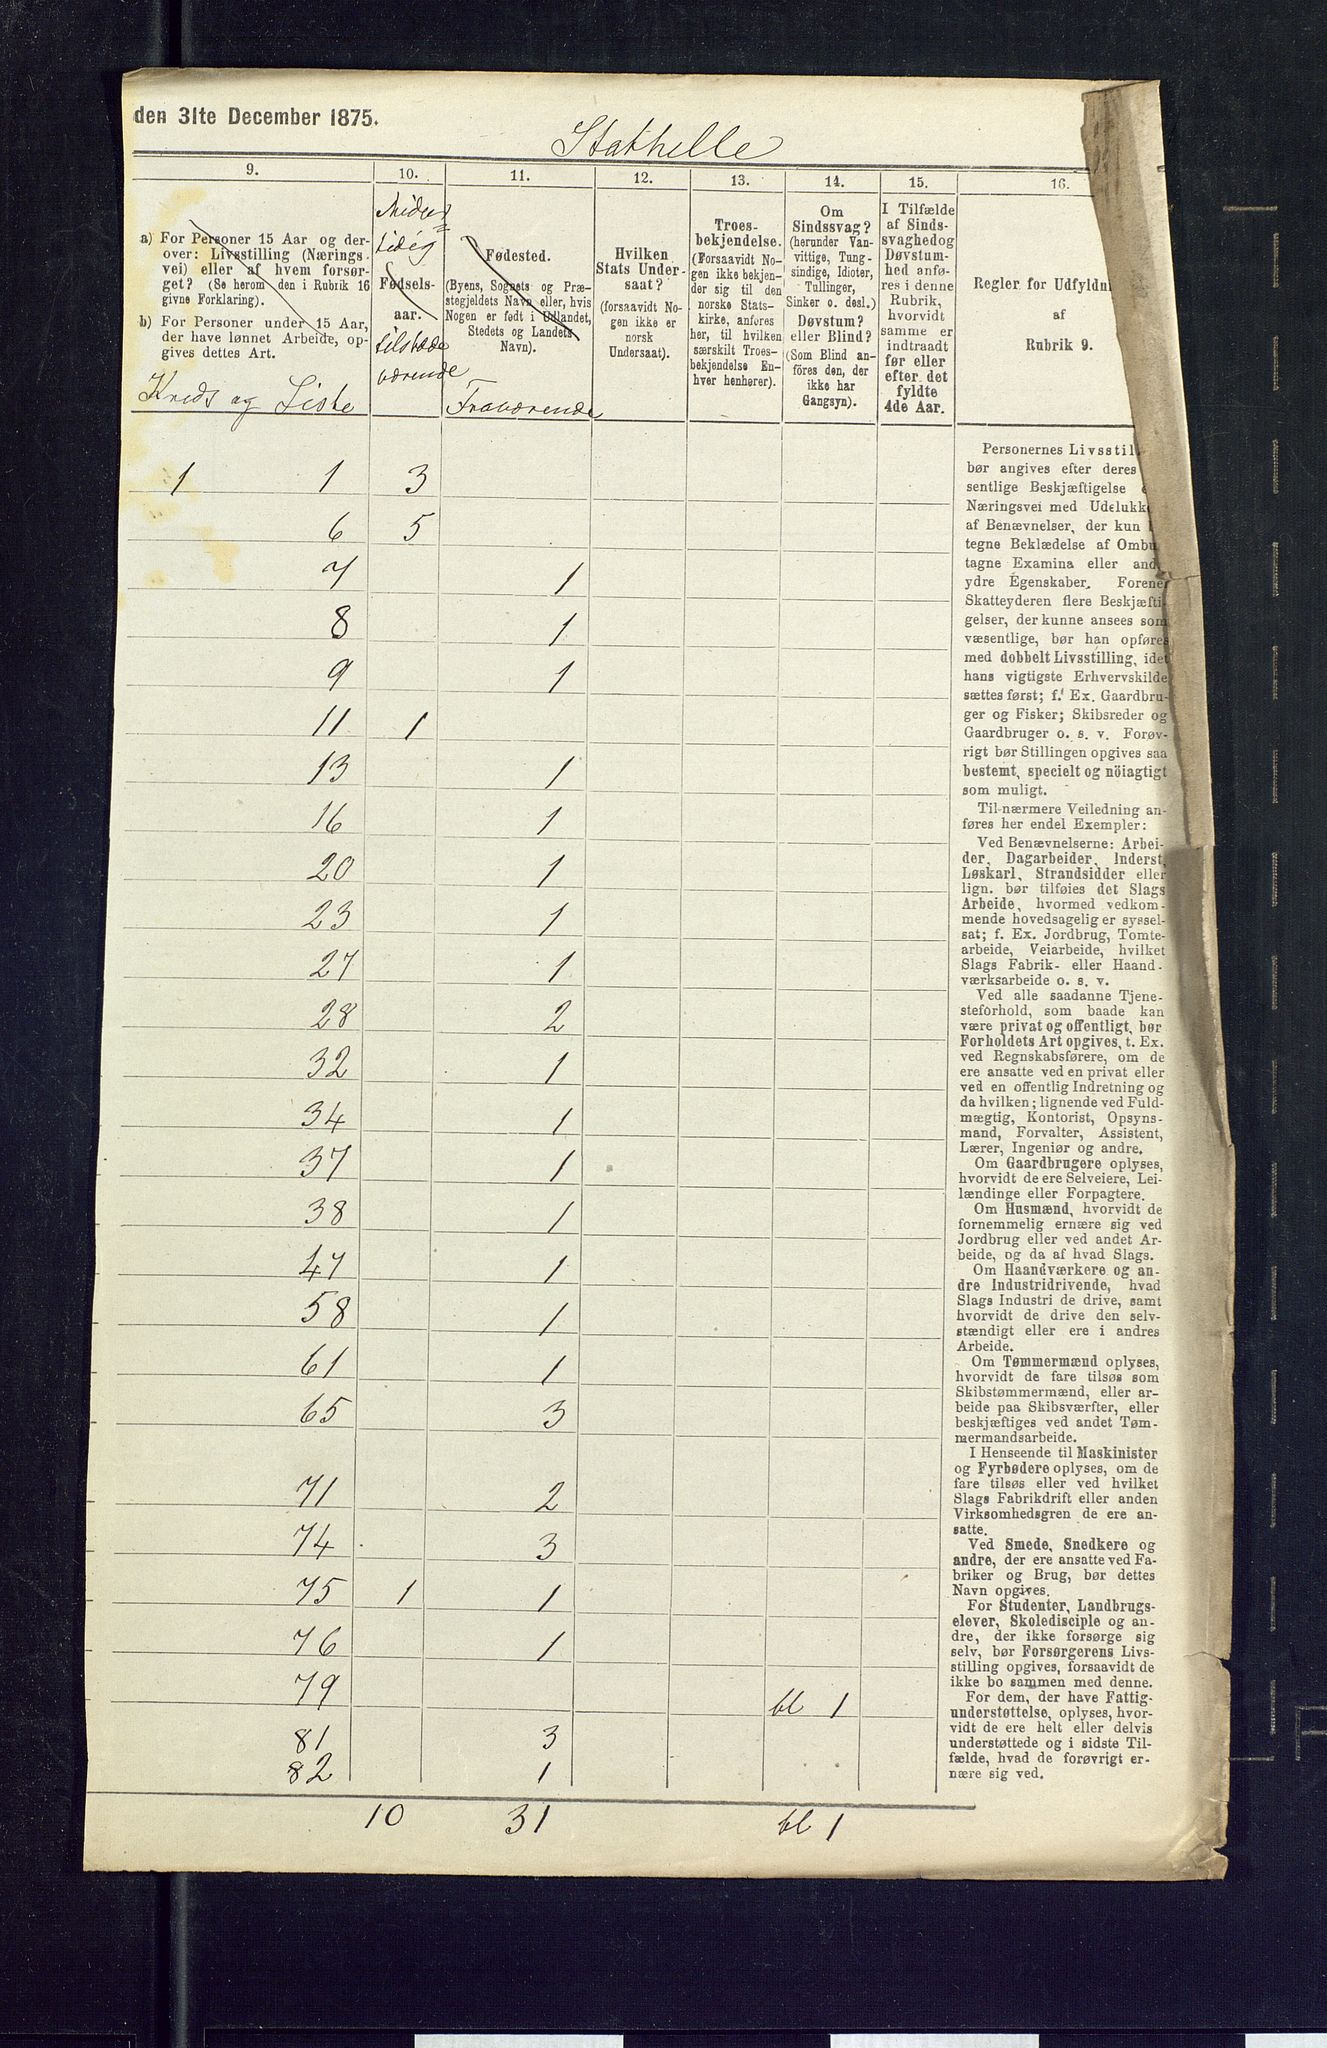 den 31te December 1875.
Stathelle
9. 10. 11. 12. 13. 14. 15. 16.
a) For Personer 15 Aar og der-
over: Livsstilling (Nærings-
vei) eller af hvem forsør-
get? (Se herom den i Rubrik 16
givne Forklaring).
b) For Personer under 15 Aar,
der have lønnet Arbeide, op-
gives dettes Art.
Kreds og Liste
Midler=
tidig
Fødsels-
aar.
tilstede
værende
Fødested.
(Byens, Sognets og Præ-
stegjeldets Navn eller, hvis
Nogen er født i Udlandet,
Stedets og Landets
Navn).
Fraværende
Hvilken
Stats Under-
saat?
(forsaavidt No-
gen ikke er
norsk
Undersaat).
Troes-
bekjendelse.
(Forsaavidt No-
gen ikke bekjen-
der sig til den
norske Stats-
kirke, anføres
her, til hvilken
særskilt Troes-
bekjendelse En-
hver henhører).
Om
Sindssvag?
(herunder Van-
vittige, Tung-
sindige, Idioter,
Tullinger,
Sinker o. desl.)
Døvstum?
eller Blind?
(Som Blind an-
föres den, der
ikke har
Gangsyn).
I Tilfælde
af Sinds-
svaghed og
Døvstum-
hed anfø-
res i denne
Rubrik,
hvorvidt
samme er
indtraadt
før eller
efter det
fyldte
4de Aar.
Regler for Udfyldn
af
Rubrik 9.
1 1 3
6 5
7 1
8 1
9 1
11 1
13 1
16 1
20 1
23 1
27 1
28 2
32 1
34 1
37 1
38 1
47 1
58 1
61 1
65 3
71 2
74 3
75 1 1
76 1
79 bl 1
81 3
82 1
10 31 bl 1
Personernes Livsstil
bør angives efter deres
sentlige Beskjæftigelse
Næringsvei med Udelukk
af Benævnelser, der kun
tegne Beklædelse af Ombu
tagne Examina eller and
ydre Egenskaber. Forene
Skatteyderen flere Beskjæfti-
gelser, der kunne ansees som
væsentlige, bør han opføres
med dobbelt Livsstilling, idet
hans vigtigste Erhvervskilde
sættes først; f. Ex. Gaardbru-
ger og Fisker; Skibsreder og
Gaardbruger o. s. v. Forøv-
rigt bør Stillingen opgives saa
bestemt, specielt og nöiagtigt
som muligt.
Til nærmere Veiledning an-
føres her endel Exempler:
Ved Benævnelserne: Arbei-
der, Dagarbeider, Inderst,
Løskarl, Strandsidder eller
lign. bør tilføies det Slags
Arbeide, hvormed vedkom-
mende hovedsagelig er syssel-
sat; f. Ex. Jordbrug, Tomte-
arbeide, Veiarbeide, hvilket
Slags Fabrik- eller Haand-
værksarbeide o. s. v.
Ved alle saadanne Tjene-
steforhold, som baade kan
være privat og offentligt, bør
Forholdets Art opgives, t. Ex.
ved Regnskabsførere, om de
ere ansatte ved en privat eller
ved en offentlig Indretning og
da hvilken; lignende ved Fuld-
mægtig, Kontorist, Opsyns-
mand, Forvalter, Assistent,
Lærer, Ingeniør og andre.
Om Gaardbrugere oplyses,
hvorvidt de ere Selveiere, Lei-
lændinge eller Forpagtere.
Om Husmænd, hvorvidt de
fornemmelig ernære sig ved
Jordbrug eller ved andet Ar-
beide, og da af hvad Slags.
Om Haandværkere og an-
dre Industridrivende, hvad
Slags Industri de drive, samt
hvorvidt de drive den selv-
stændigt eller ere i andres
Arbeide.
Om Tømmermænd oplyses,
hvorvidt de fare tilsøs som
Skibstømmermænd, eller ar-
beide paa Skibsværfter, eller
beskjæftiges ved andet Tøm-
mermandsarbeide.
I Henseende til Maskinister
og Fyrbødere oplyses, om de
fare tilsøs eller ved hvilket
Slags Fabrikdrift eller anden
Virksomhedsgren de ere an-
satte.
Ved Smede, Snedkere og
andre, der ere ansatte ved Fa-
briker og Brug, bør dettes
Navn opgives.
For Studenter, Landbrugs-
elever, Skoledisciple og an-
dre, der ikke forsørge sig
selv, bør Forsørgerens Livs-
stilling opgives, forsaavidt de
ikke bo sammen med denne.
For dem, der have Fattig-
understøttelse, oplyses, hvor-
vidt de ere helt eller delvis
understøttede og i sidste Til-
fælde, hvad de forøvrigt er-
nære sig ved.